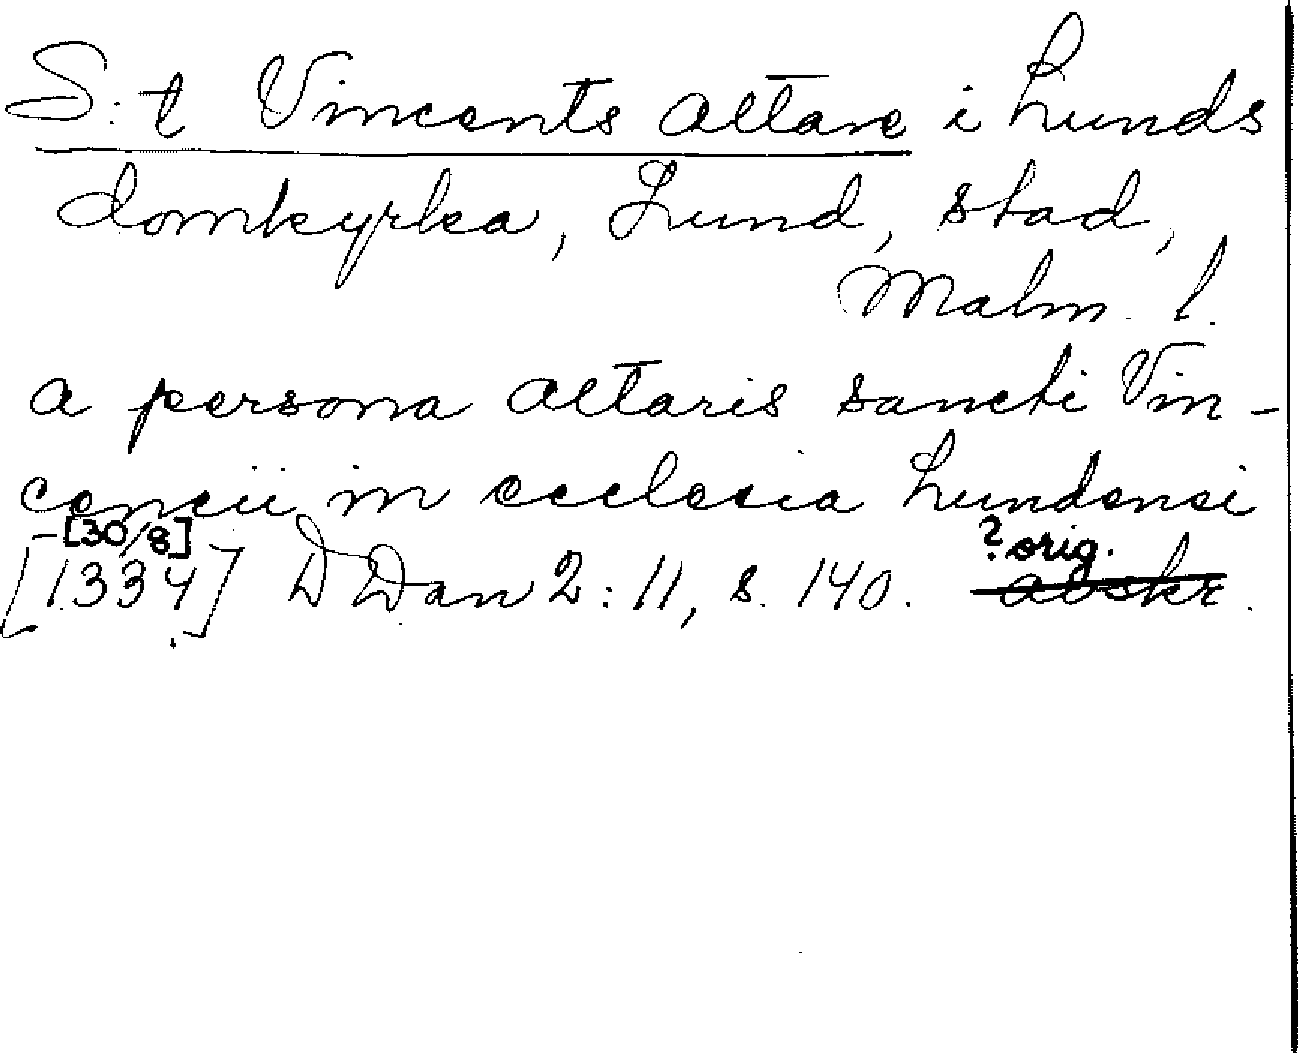 S:t Vincents altare i Lunds
domkyrka, Lund, stad,
Malm. l.
a persona altaris sancti Vin-
cencii in ecclesia Lundensi
-[30/8] ? orig.
[1334] D Dan 2:11, s. 140. abskr.